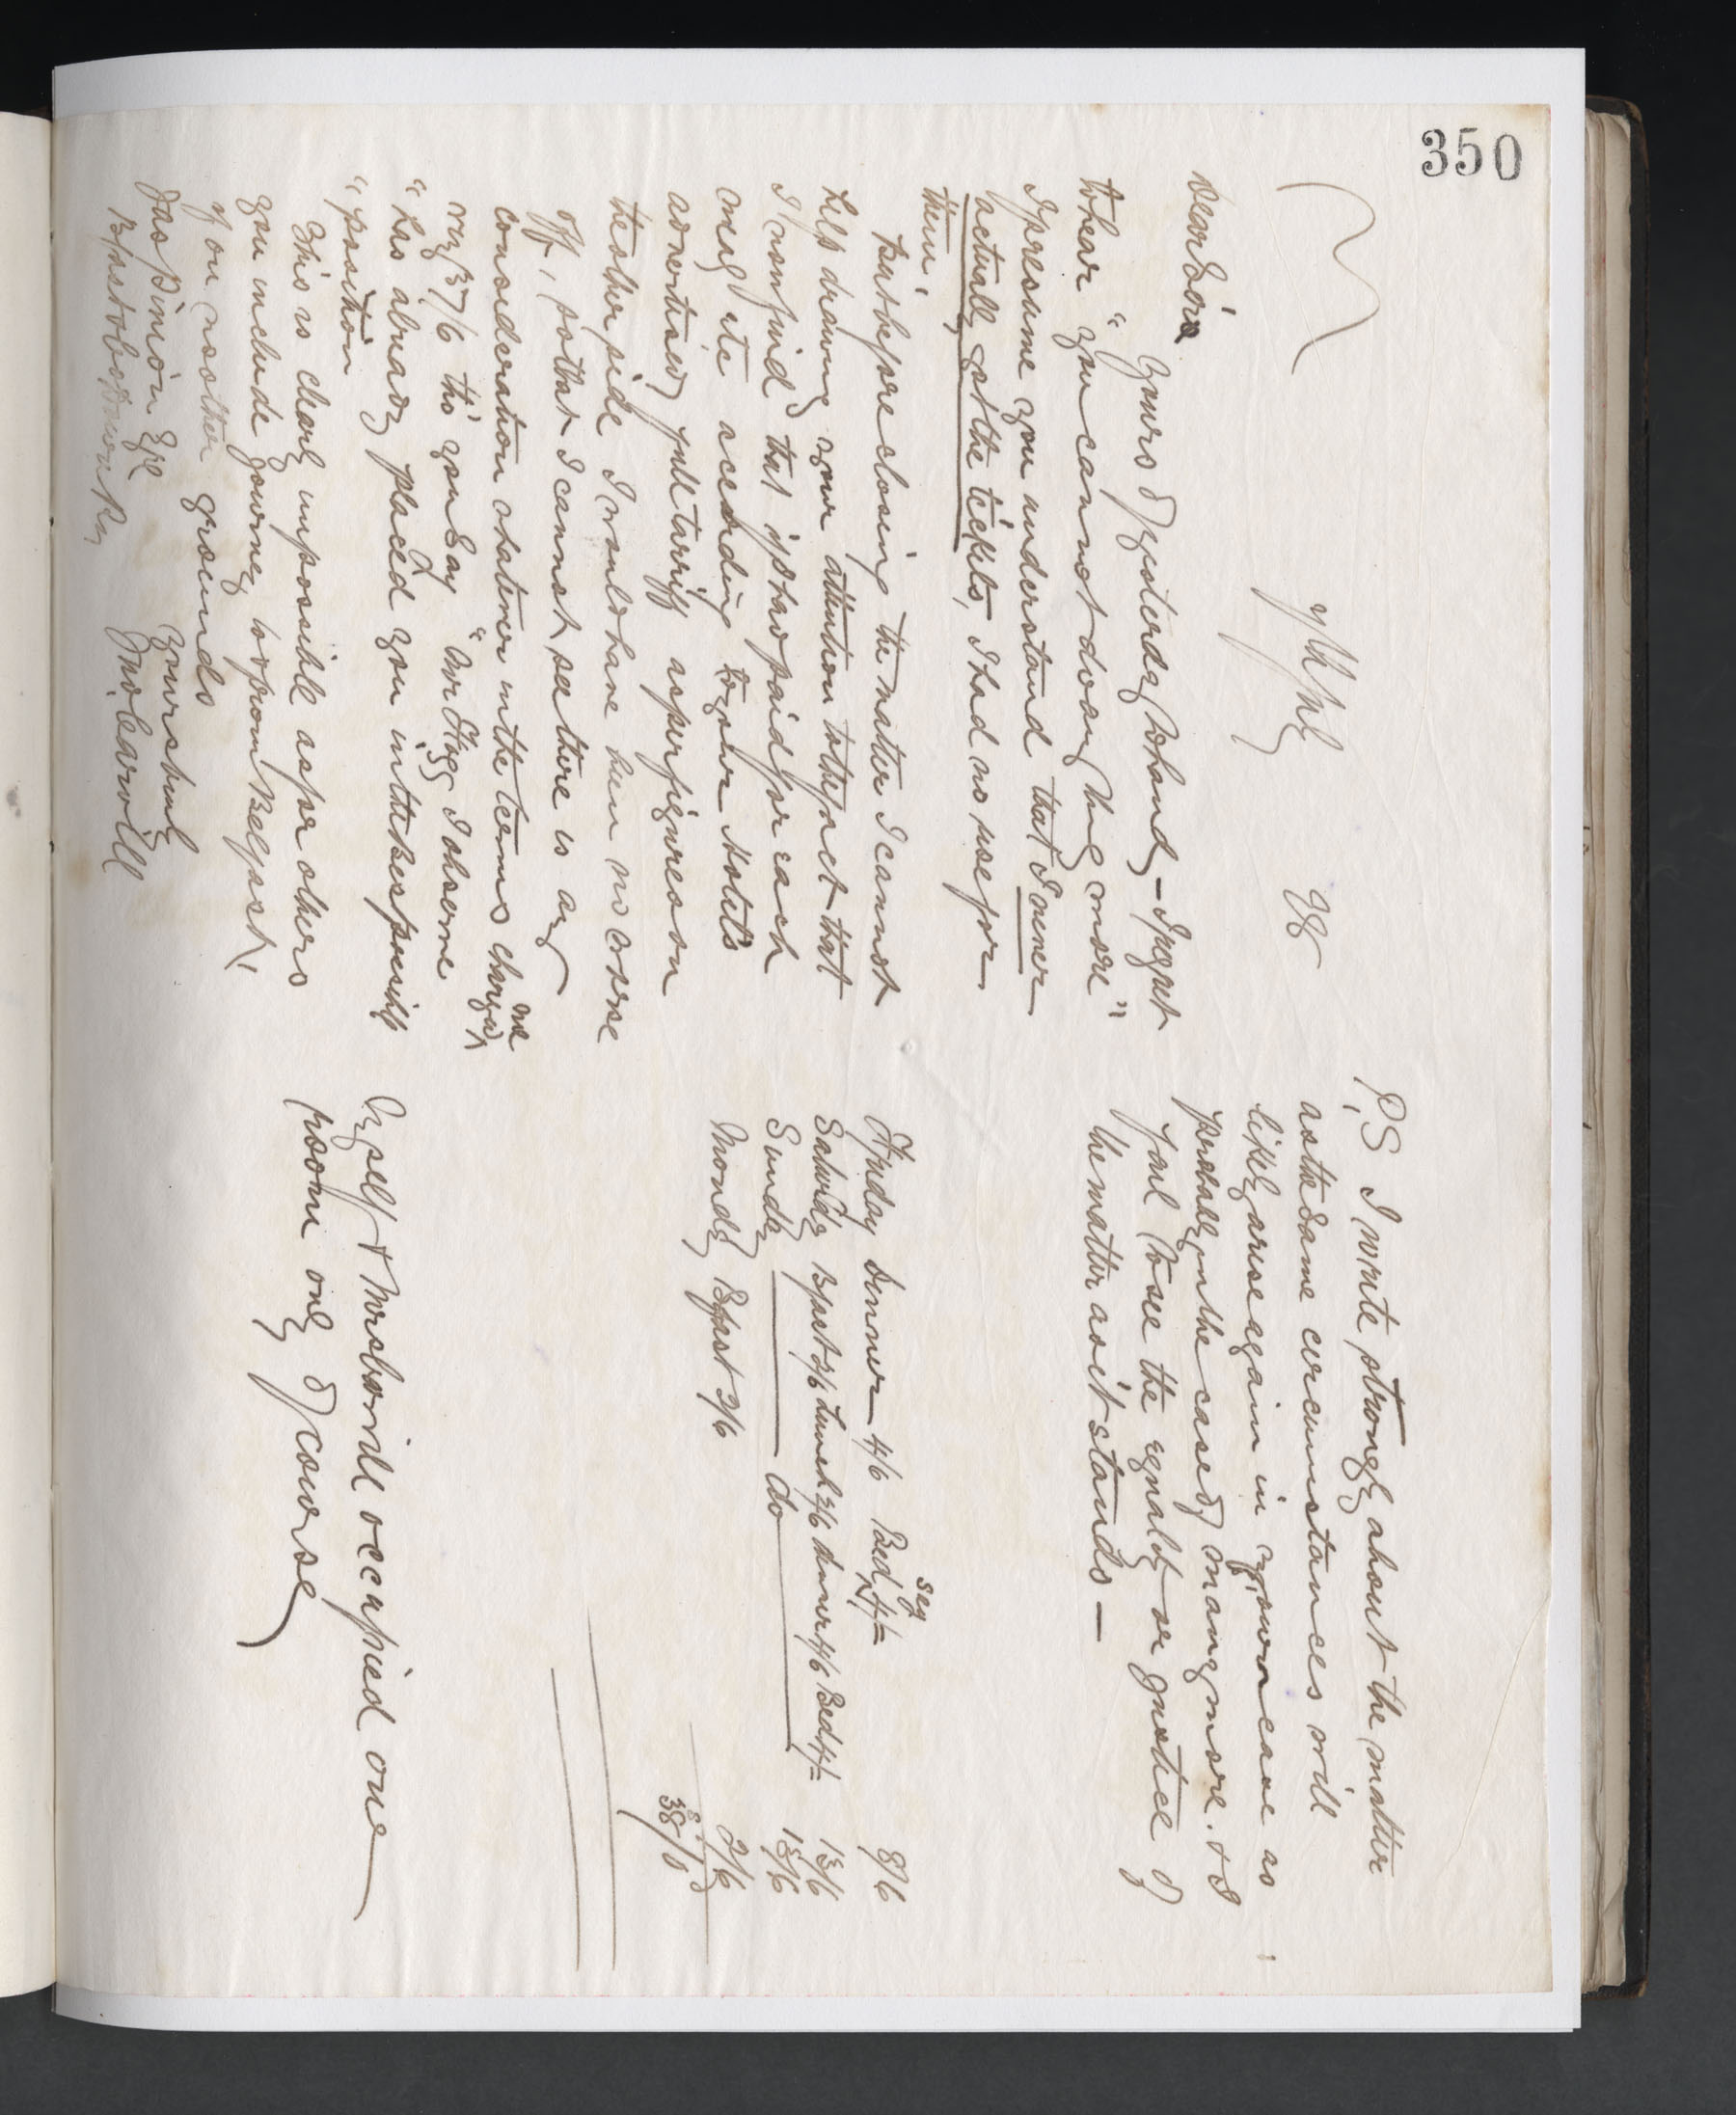 350
7th July 98
Dear Sir
Yours of yesterday to hand - I regret
to hear "you cannot do any thing more"
I presume you understand that I never
actually got the tickets, I had no use for
them.
But before closing the matter I cannot
help drawing your attention to the fact that
I now find that if I had paid for each
meal etc according to your Hotels
advertised full tariff as per figures on
the other side I would have been no worse
off, so that I cannot see there is any
consideration whatever in the terms charged me
viz 37/6 tho' you say "Mr Stigg I observe
"has already placed you in the best possible
"position
This is clearly impossible as per others
you include journey to & from Belfast!
if on no other grounds
Yours truly
Jno. Carvill
P.S I write strongly about the matter
as the same circumstances will
likely arise again in your case as
probably in the case of many more. & I
fail to see the equality or justice of
the matter as it stands -
Friday Dinner 4/6 Bed & seq 4/= 8/6
Saturdy Bfast 2/6 Lunch 2/6 dinner 4/6 Bed 4/= 13/6
Sundy do 13/6
Mondy Bfast 2/6 2/6
38/0
Myself & Mrs Carvill occupied one
room only of course